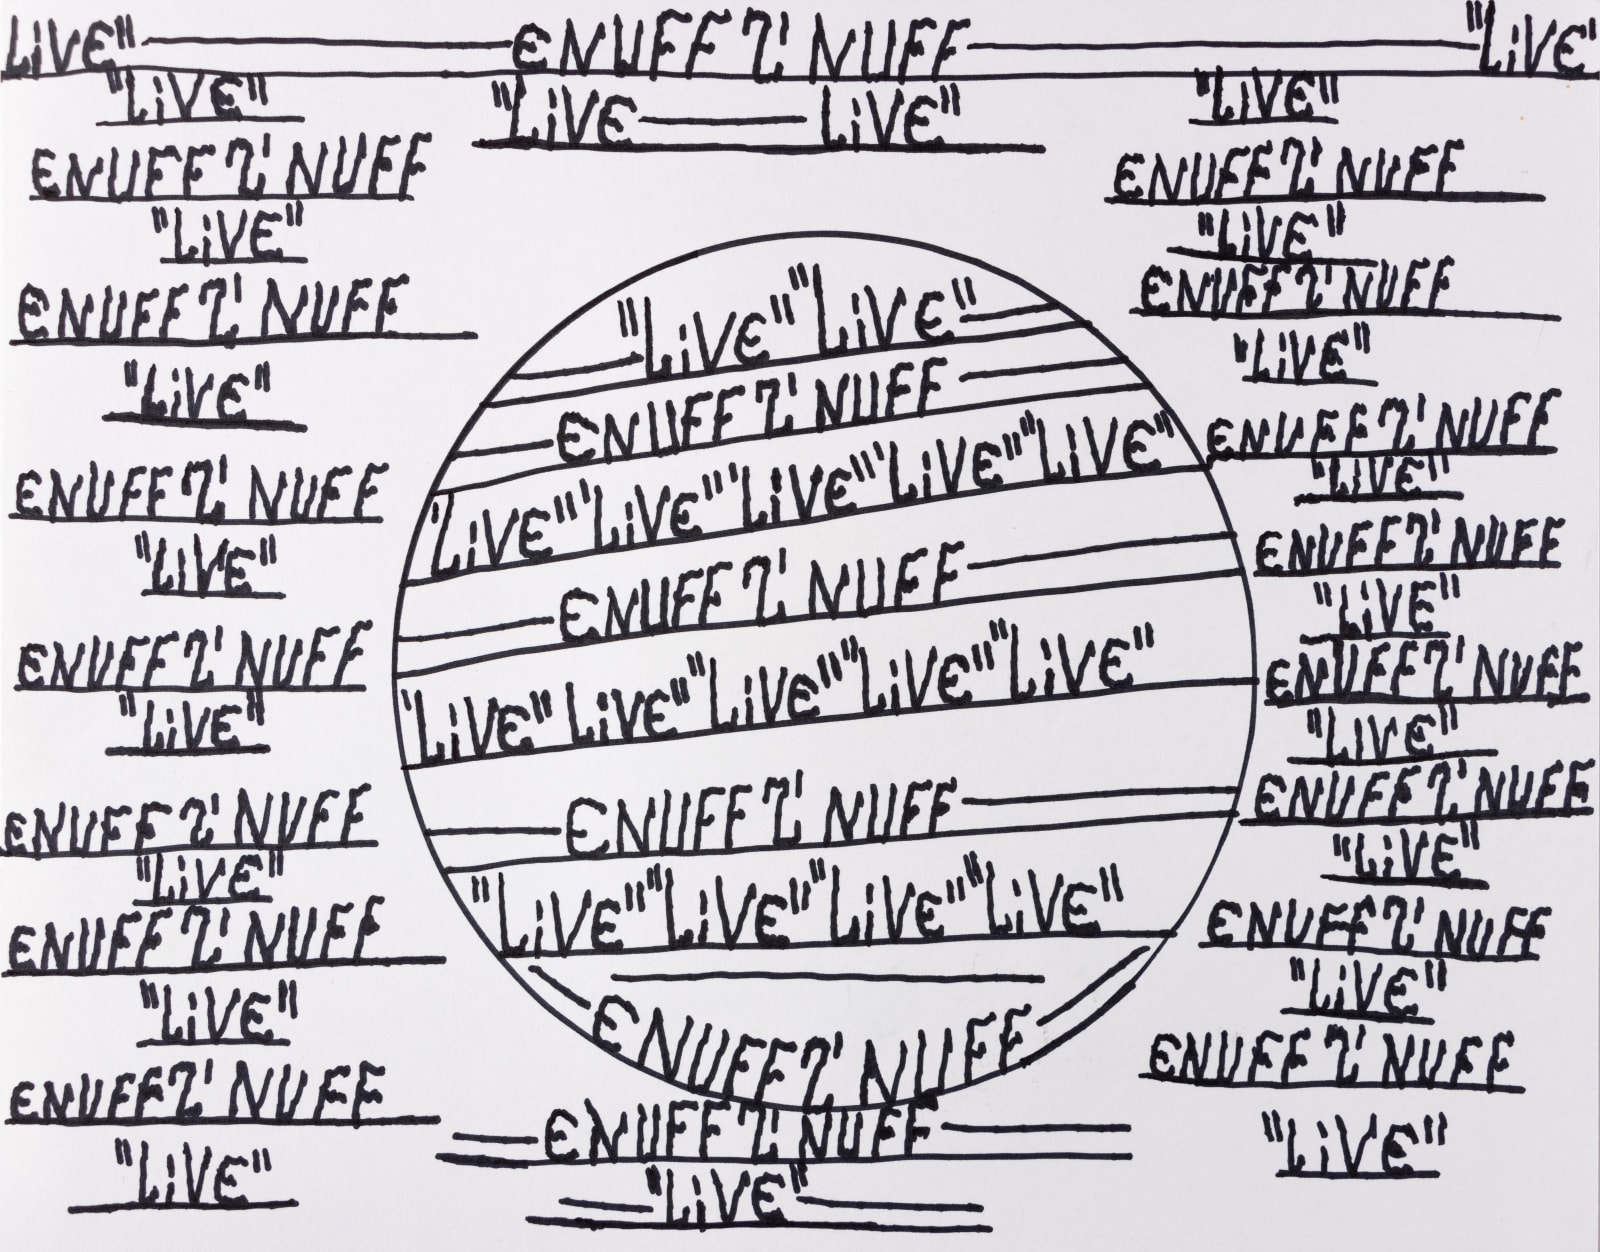 LiVE" ENUFF Z' NUFF "LiVE"
"LiVE"
ENUFF Z' NUFF
"LiVE"
ENUFF Z' NUFF
"LiVE"
ENUFF Z' NUFF
"LiVE"
ENUFF Z' NUFF
"LiVE"
ENUFF Z' NUFF
"LiVE"
ENUFF Z' NUFF
"LiVE"
ENUFF Z' NUFF
"LiVE"
"LiVE LiVE"
"LiVE" "LiVE"
ENUFF Z' NUFF
'LiVE" 'LiVE" 'LiVE" 'LiVE" "LiVE"
ENUFF Z' NUFF
'LiVE" LiVE" "LiVE" "LiVE" "LiVE"
ENUFF Z' NUFF
"LiVE" "LiVE" "LiVE" "LiVE"
ENUFF Z' NUFF
ENUFF Z' NUFF
"LiVE"
"LiVE"
ENUFF Z' NUFF
"LiVE"
ENUFF Z' NUFF
"LiVE"
ENUFF Z' NUFF
"LiVE"
ENUFF Z' NUFF
"LiVE"
ENUFF Z' NUFF
"LiVE"
ENUFF Z' NUFF
"LiVE"
ENUFF Z' NUFF
"LiVE"
ENUFF Z' NUFF
"LiVE"